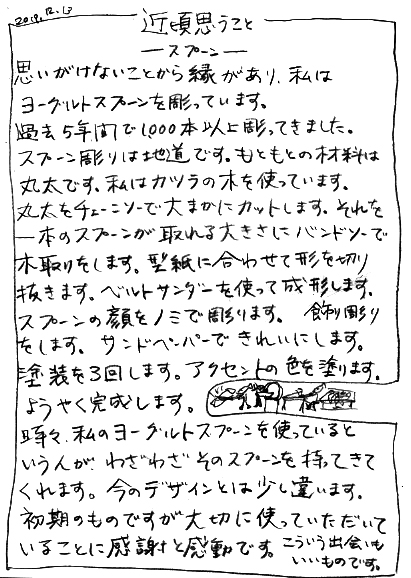 2018.12.13
近頃思うこと
—スプーン—
思いがけないことから縁があり、私は
ヨーグルトスプーンを彫っています。
過去5年間で1,000本以上彫ってきました。
スプーン彫りは地道です。もともとの材料は
丸太です。私はカツラの木を使っています。
丸太をチェーンソーで大まかにカットします。それを
一本のスプーンが取れる大きさにバンドソーで
木取りをします。型紙に合わせて形を切り
抜きます。ベルトサンダーを使って成形します。
スプーンの顔をノミで彫ります。飾り彫り
をします。サンドペーパーできれいにします。
塗装を3回します。アクセントの色を塗ります。
ようやく完成します。
時々、私のヨーグルトスプーンを使っていると
いう人が、わざわざそのスプーンを持ってきて
くれます。今のデザインとは少し違います。
初期のものですが大切に使っていただいて
いることに感謝と感動です。こういう出会いも
いいものです。